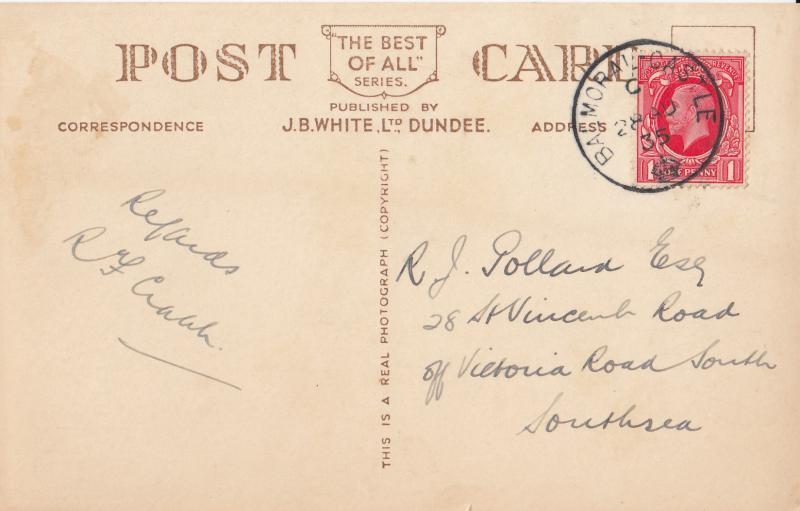 POST CARD
"THE BEST
OF ALL"
SERIES.
PUBLISHED BY
J.B.WHITE, LTD. DUNDEE.
CORRESPONDENCE
ADDRESS
BALMORAL CASTLE
C
28 AU
35
REVENUE
1 PENNY 1
THIS IS A REAL PHOTOGRAPH (COPYRIGHT)
Regards
R
R. J. Pollard Esq
28 St Vincent Road
off Victoria Road South
Southsea